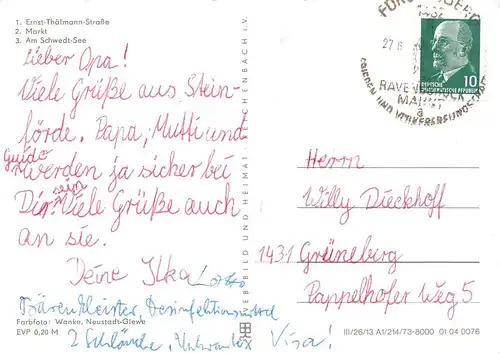 1. Ernst-Thälmann-Straße
2. Markt
3. Am Schwedt-See
Lieber Opa!
Viele Grüße aus Stein-
förde. Papa, Mutti und
Guido
werden ja sicher bei
Dir sein. Viele Grüße auch
an sie.
Deine Ilka
Bären Meister, Desinfektionsmittel
2 Schläuche,
Visa!
Farbfoto: Wanke, Neustadt-Glewe
EVP 0,20 M
BILD UND HEIMAT REICHENBACH i. V.
27.6
RAVENSBRÜCK
MAHNT
a
FRIEDEN UND VÖLKERFREUNDSCHAFT
1432
DEUTSCHE
DEMOKRATISCHE REPUBLIK
10
Herrn
Willy Dieckhoff
1431 Grüneberg
Pappelhofer Weg 5
III/26/13 A1/214/73-8000 01 04 0076